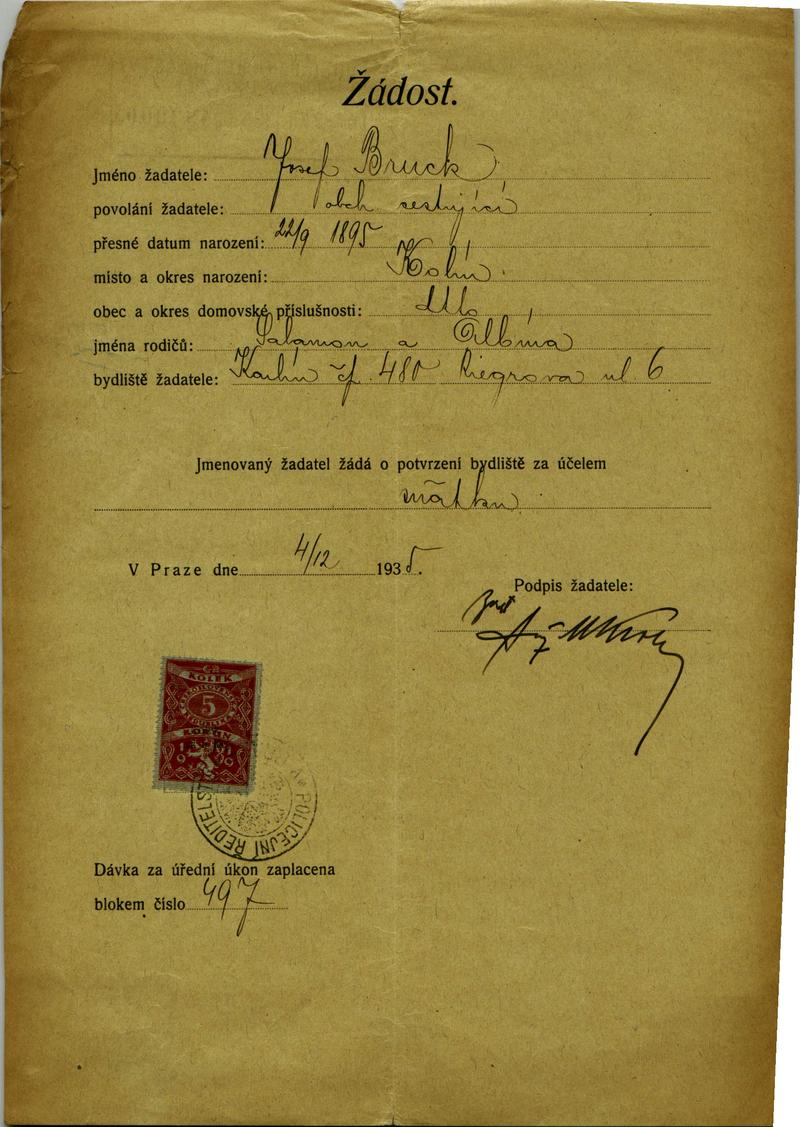 Žádost.
Jméno žadatele: Josef Bruck
povolání žadatele: obch cestující
přesné datum narození: 22/9 1895
místo a okres narození: Kolín
obec a okres domovské příslušnosti:
jména rodičů: Salamon a Albina
bydliště žadatele: Karlín čp. 480 Riegrova ul 6
Jmenovaný žadatel žádá o potvrzení bydliště za účelem
V Praze dne 4/12 1935.
Podpis žadatele:
KOLEK
5
KORUN
POLICEJNÍ ŘEDITELST
Dávka za úřední úkon zaplacena
blokem číslo 497